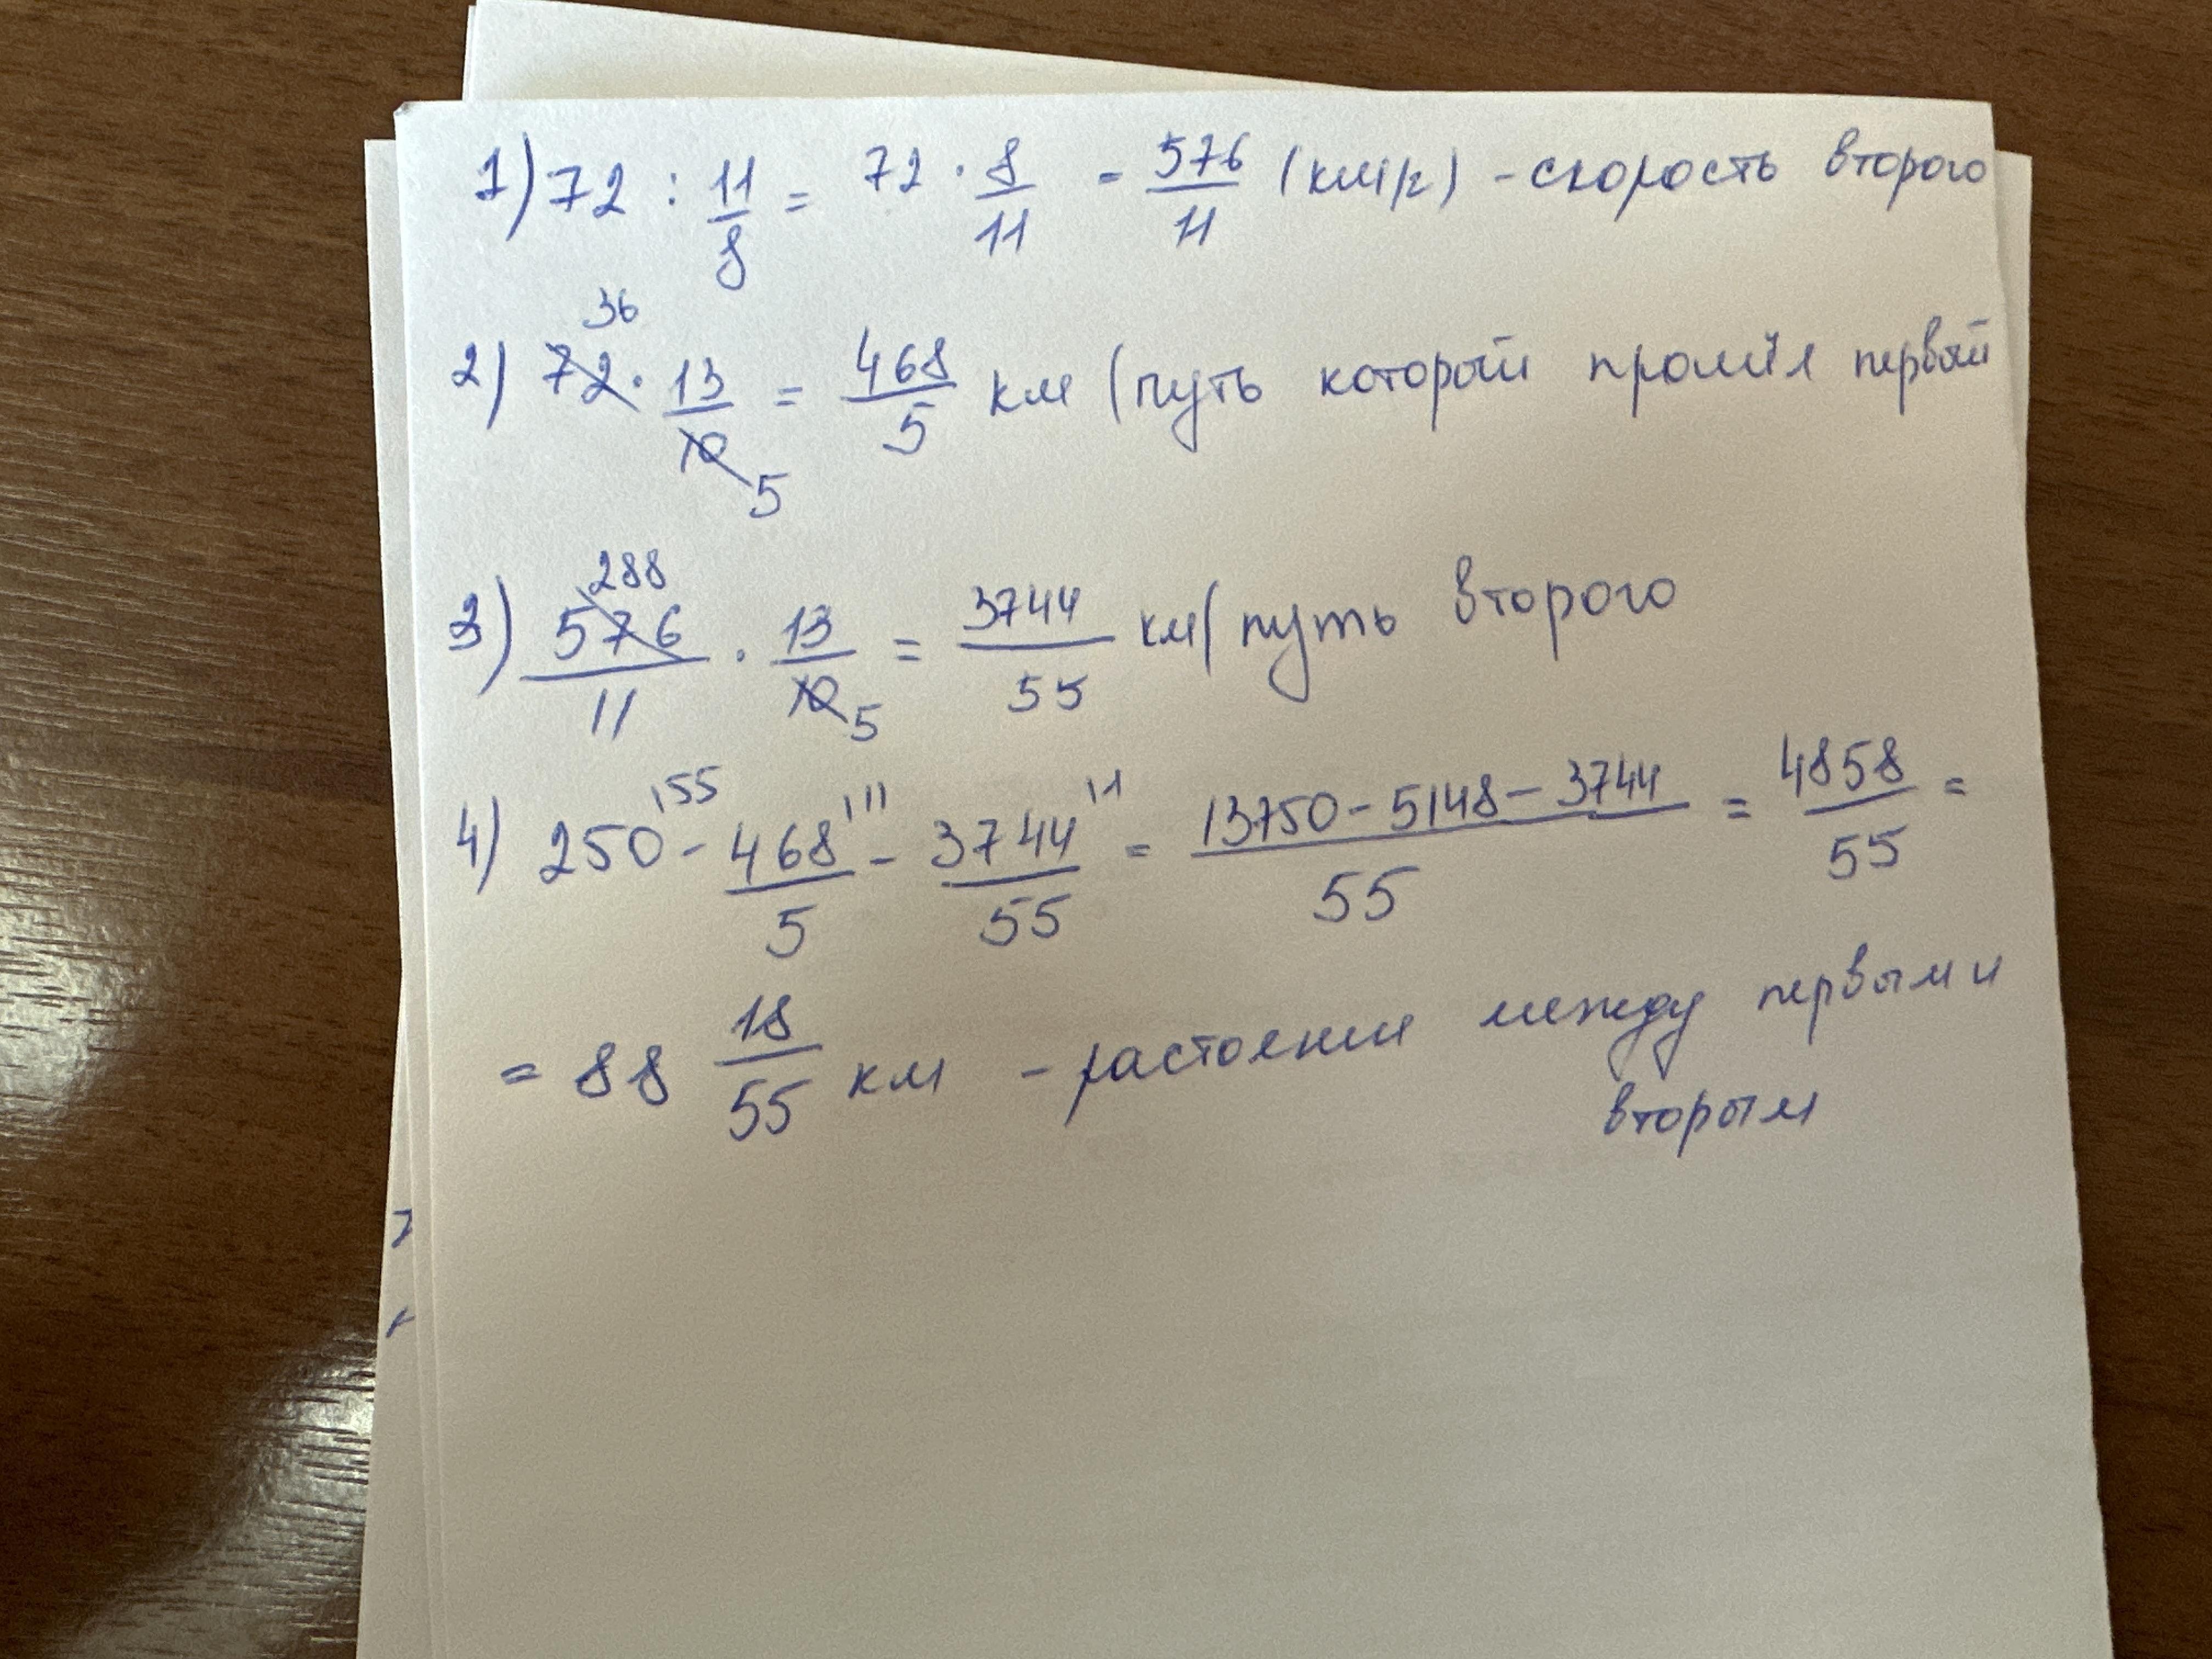 1) 72 : 11/8 = 72 · 8/11 = 576/11 (км/ч) - скорость второго
2) 72 36 · 13/10 5 = 468/5 км (путь который прошёл первый
3) 576 288/11 · 13/10 5 = 3744/55 км ( путь второго
4) 250 \55 - 468 \11/5 - 3744 \1/55 = 13750 - 5148 - 3744/55 = 4858/55 =
= 88 18/55 км - растояние между первым и
вторым